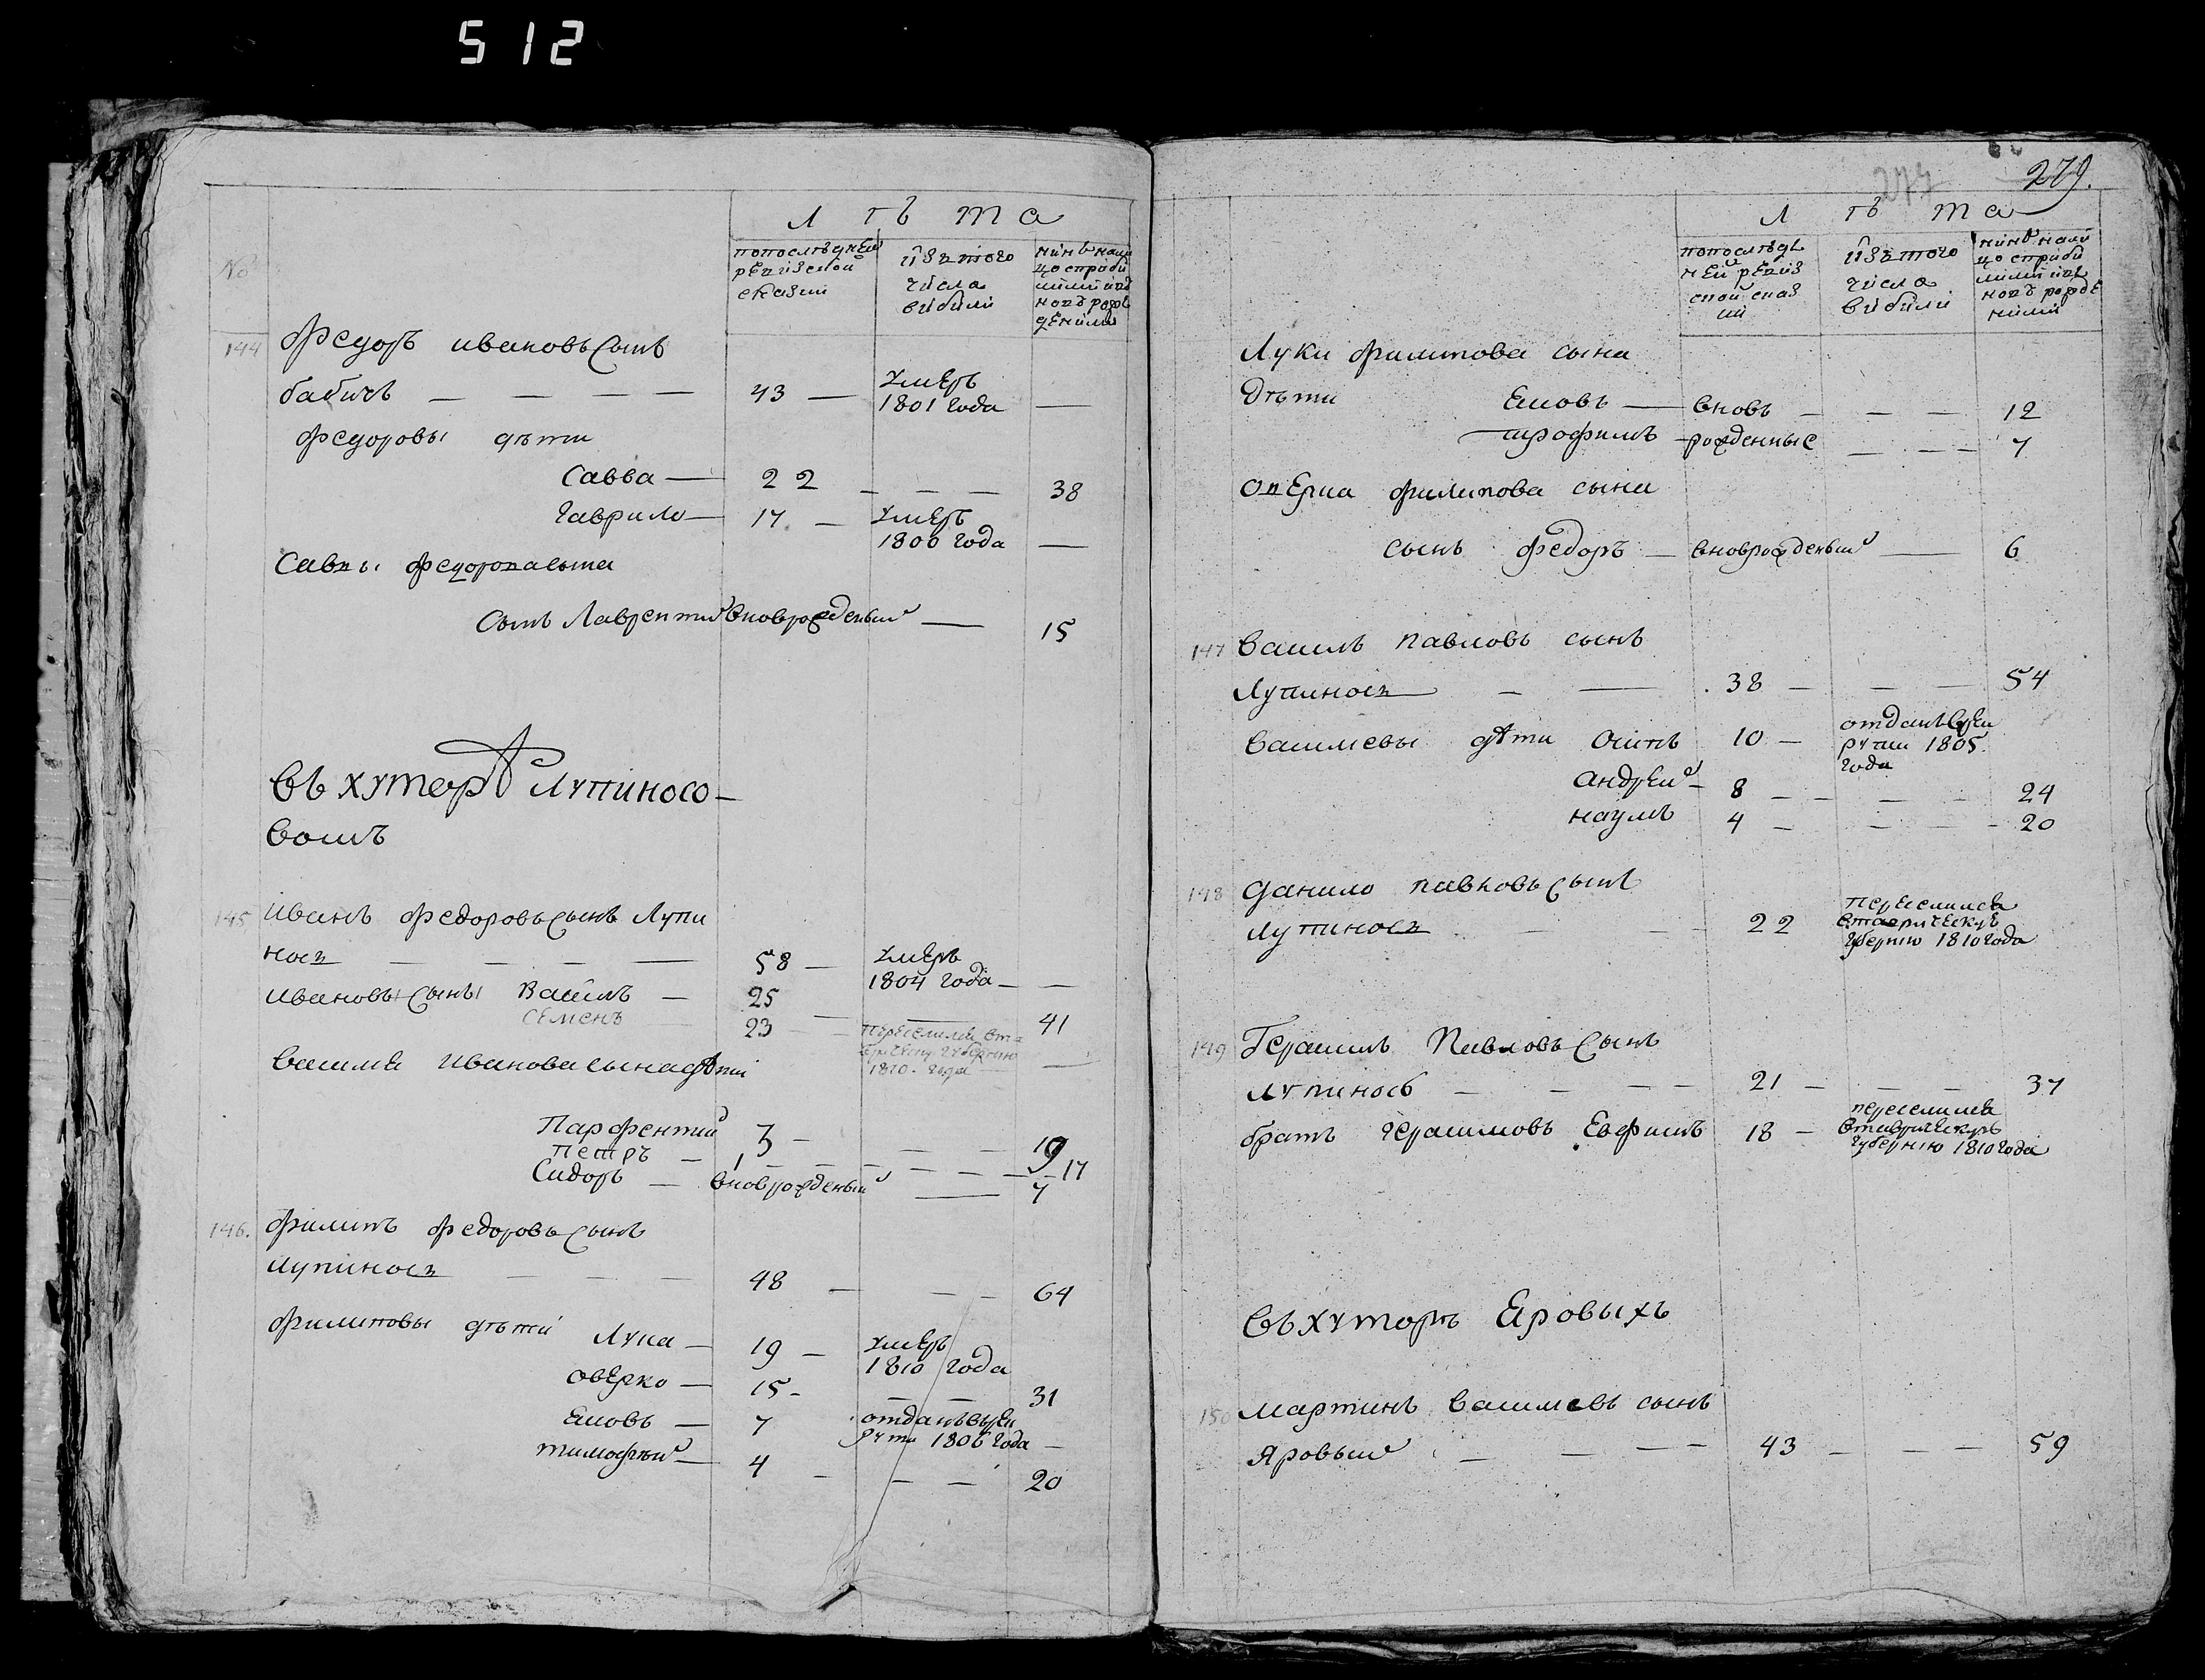 512
№
Л ѣ та
попослѣдней
ревизской
сказки
изъ того
числа
выбыли
нынѣ нали
цо справы
144 Федоръ Ивановъ сынъ
Бабичъ — — — — 43 — умеръ
1801 года —
Федоровы дѣти
Савва — 22 — — — 38
Гаврило — 17 — умеръ
1800 года —
Саввы Федорова сына
Сынъ Лаврентий вноврожденый — 15
Въ хуторѣ Лупиносо-
вомъ
145 Иванъ Федоровъ сынъ Лупи
носъ — — — — 58 — умеръ
1804 года — —
Ивановы сыны Василь — 25 — — 41
Семенъ 23 — переселился вта
врическу губернию
1810 года —
Василия Иванова сына дѣти
Парфентий 3 — — — 19
Петръ — 1 — — — — — 17
Сидоръ — вноврожденый — 7
146. Филипъ Федоровъ сынъ
Лупиносъ — — — 48 — — — 64
Филиповы дѣти Лука — 19 — умеръ
1810 года
Оверко — 15 - — — 31
Яковъ — 7 отданъ врек
руты 1806 года —
Тимофѣй — 4 — — — 20
277
279.
Л ѣ та
попослѣд
ней ревиз
ской сказ
ки
изъ того
числа
выбыли
нынѣ нали
цо справы
Луки Филипова сына
Дѣти Яковъ — вновь — — — 12
Трофимъ — рожденные — — — 7
Оверка Филипова сына
сынъ Федоръ — вноврожденый — 6
147 Василь Павловъ сынъ
Лупиносъ — — 38 — — — 54
Василевы дѣти Осипъ 10 — отданъ врек
руты 1805.
года
Андрей — 8 — — — — 24
Наумъ 4 — — — - 20
148 Данило Павловъ сынъ
Лупиносъ — — 22 переселился
втаврическую
губернию 1810 года
149 Герасимъ Павловъ сынъ
Лупиносъ — — — — 21 — — — 37
братъ Герасимовъ Евфимъ 18 — переселился
втаврическую
губернию 1810 года
Въ хуторѣ Яровыхъ
150 Мартинъ Василевъ сынъ
Яровый — — — — 43 — — — 59